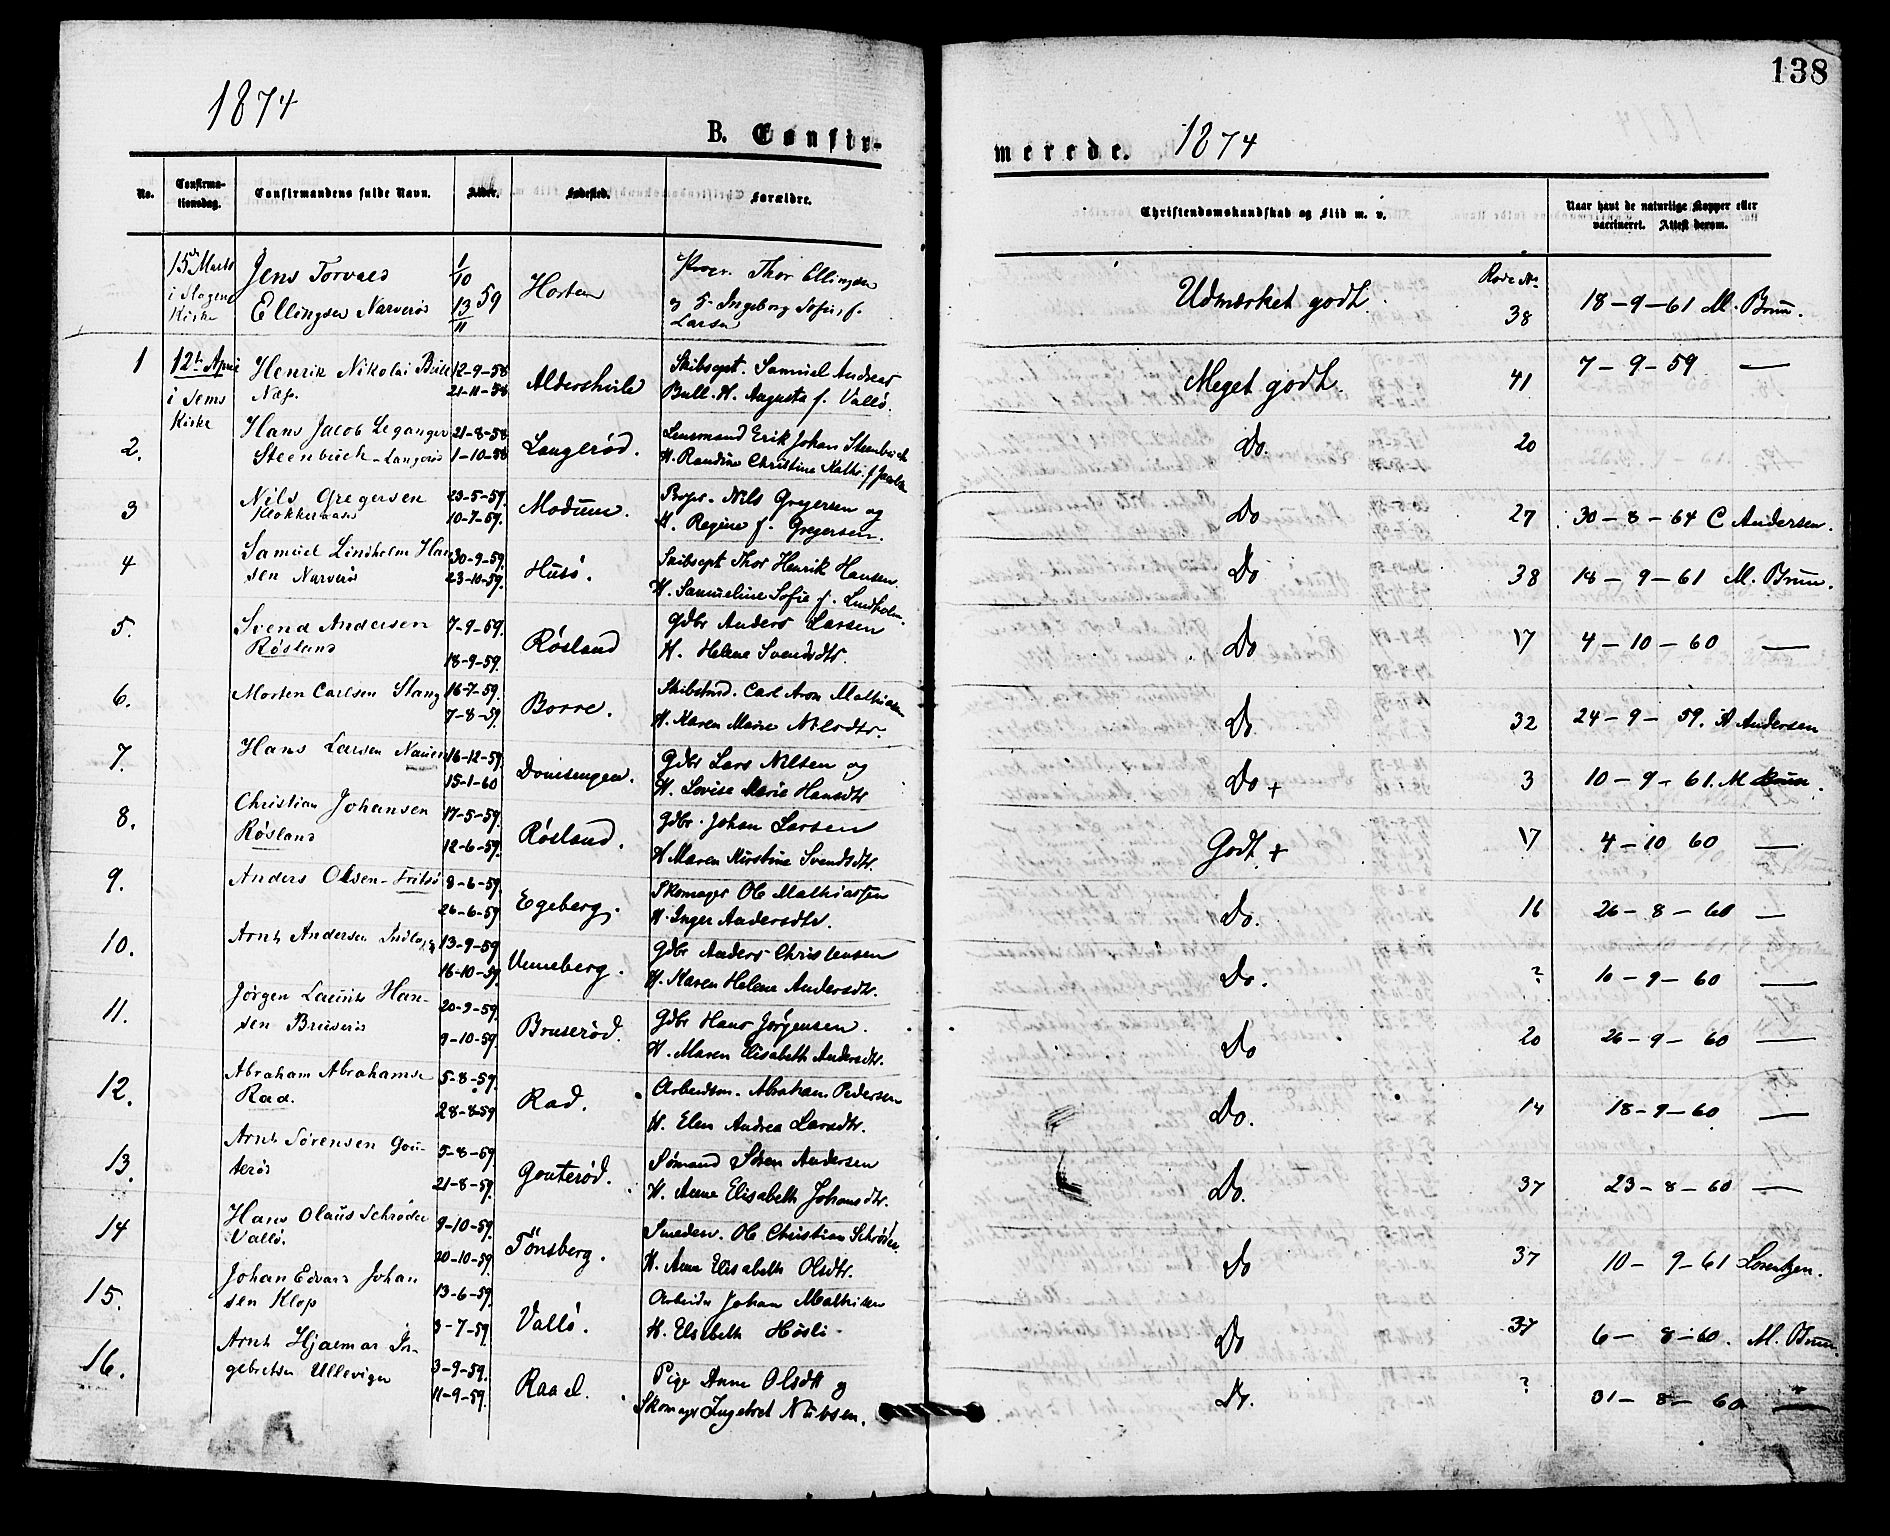 138
1874
B. Confir-
merede. 1874
No.
Confirma-
tionsdag.
Confirmandens fulde Navn.
Alder.
Fødested.
Forældre.
Christendomskundskab og Flid m. v.
Naar havt de naturlige Kopper eller
vaccineret. Attest derom.
15de Marts
i Slagens
Kirke
Jens Torvald
Ellingsen Narverød
1/10
13/11 59
Horten
Thor Ellingsen
og Ingeborg Sofie, f.
Larsen
Udmærket godt.
Rode No
38
18-9-61 M. Bruu.
1
12te April
i Sems
Kirke
Henrik Nikolai Bull
Næs.
12-9-58
21-11-58
Aldershvile
Skibscpt. Samuel Andreas
Bull. H. Augusta f. Vallø.
Meget godt.
41
7-9-59 —
2.
Hans Jacob Leganger
Steenbuch - Langerød
21-8-58
1-10-58
Langerød.
Lensmand Erik Johan Steenbuch
H. Randine Christine Kathr. f Jacobsen
Do.
20
3
Nils Gregersen
Klokkeraasen
23-5-59.
10-7-59.
Modum.
Nils Gregersen og
H. Regine f. Gregersen.
Do
27
30-8-64 C Andersen.
4
Samuel Lindholm Han
sen Narverø
30-9-59.
23-10-59.
Husø.
Skibscpt Thor Henrik Hansen
H. Samueline Sofie f. Lindholm.
Do
38
18-9-61 M. Bruu.
5.
Svend Andersen
Røsland
7-9-59.
18-9-59.
Røsland
Gdbr Anders Larsen
H. Helene Svendsdtr.
Do
17
4-10-60 —
6.
Morten Carlsen Stang
16-7-59.
7-8-59.
Borre.
Skibstmd. Carl Aron Mathiasen
H. Karen Marie Nilsdtr.
Do
32
24-9-59. A Andersen
7.
Hans Larsen Nauen
16-12-59.
15-1-60
Gdbr Lars Nilsen og
H. Lovise Marie Hansdtr
Do +
3
10-9-61. M Bruu.
8.
Christian Johansen
Røsland
17-5-59.
12-6-59.
Røsland.
Gdbr. Johan Larsen
H Maren Kirstine Svendsdtr.
Godt +
17
4-10 60 —
9.
Anders Olsen - Fritsø
8-6-59.
26-6-59
Egeberg.
Skomager Ole Mathiassen
H. Inger Andersdtr.
Do.
16
26-8-60 —
10.
Arnt Andersen
13-9-59
16-10-59.
Unneberg.
Gdbr Anders Christensen
H. Karen Helene Andersdtr.
Do.
?
10-9-60 —
11.
Jørgen Laurits Han-
sen Bruserød
20-9-59.
9-10-59.
Bruserød.
Gdbr Hans Jørgensen.
H. Maren Elisabeth Andersdtr.
Do
20
26-9-60 —
12.
Abraham Abrahamsen
Rad.
5-8-59.
28-8-59
Rad.
Arbeidsm. Abraham Pedersen
H. Elen Andrea Larsdtr.
Do.
14
18-9-60 —
13.
Arnt Sørensen Gou-
terød
5-8-59.
21-8-59.
Gouterød.
Sømand Søren Andersen
H. Anne Elisabeth Johansdtr.
Do.
37
23-8-60 —
14
Hans Olaus Schrøder
Vallø.
9-10-59.
20-10-59.
Tönsberg.
Smedsv. Ole Christian Schrøder.
H. Anne Elisabeth Olsdtr.
Do
37
10-9-61 Lorentzen.
15.
Johan Edvard Johan
sen Klop
13-6-59.
3-7-59.
Vallø.
Arbeider Johan Mathisen
H. Elsebeth Høsli.
Do
37
6-8-60. M. Bruu.
16.
Arnt Hjalmar In-
gebretsen Ullevigen
3-9-59.
11-9-59.
Raael.
Pige Anne Olsdtr og
Skomager Ingebret Nilsen.
Do.
?
31-8-60 —